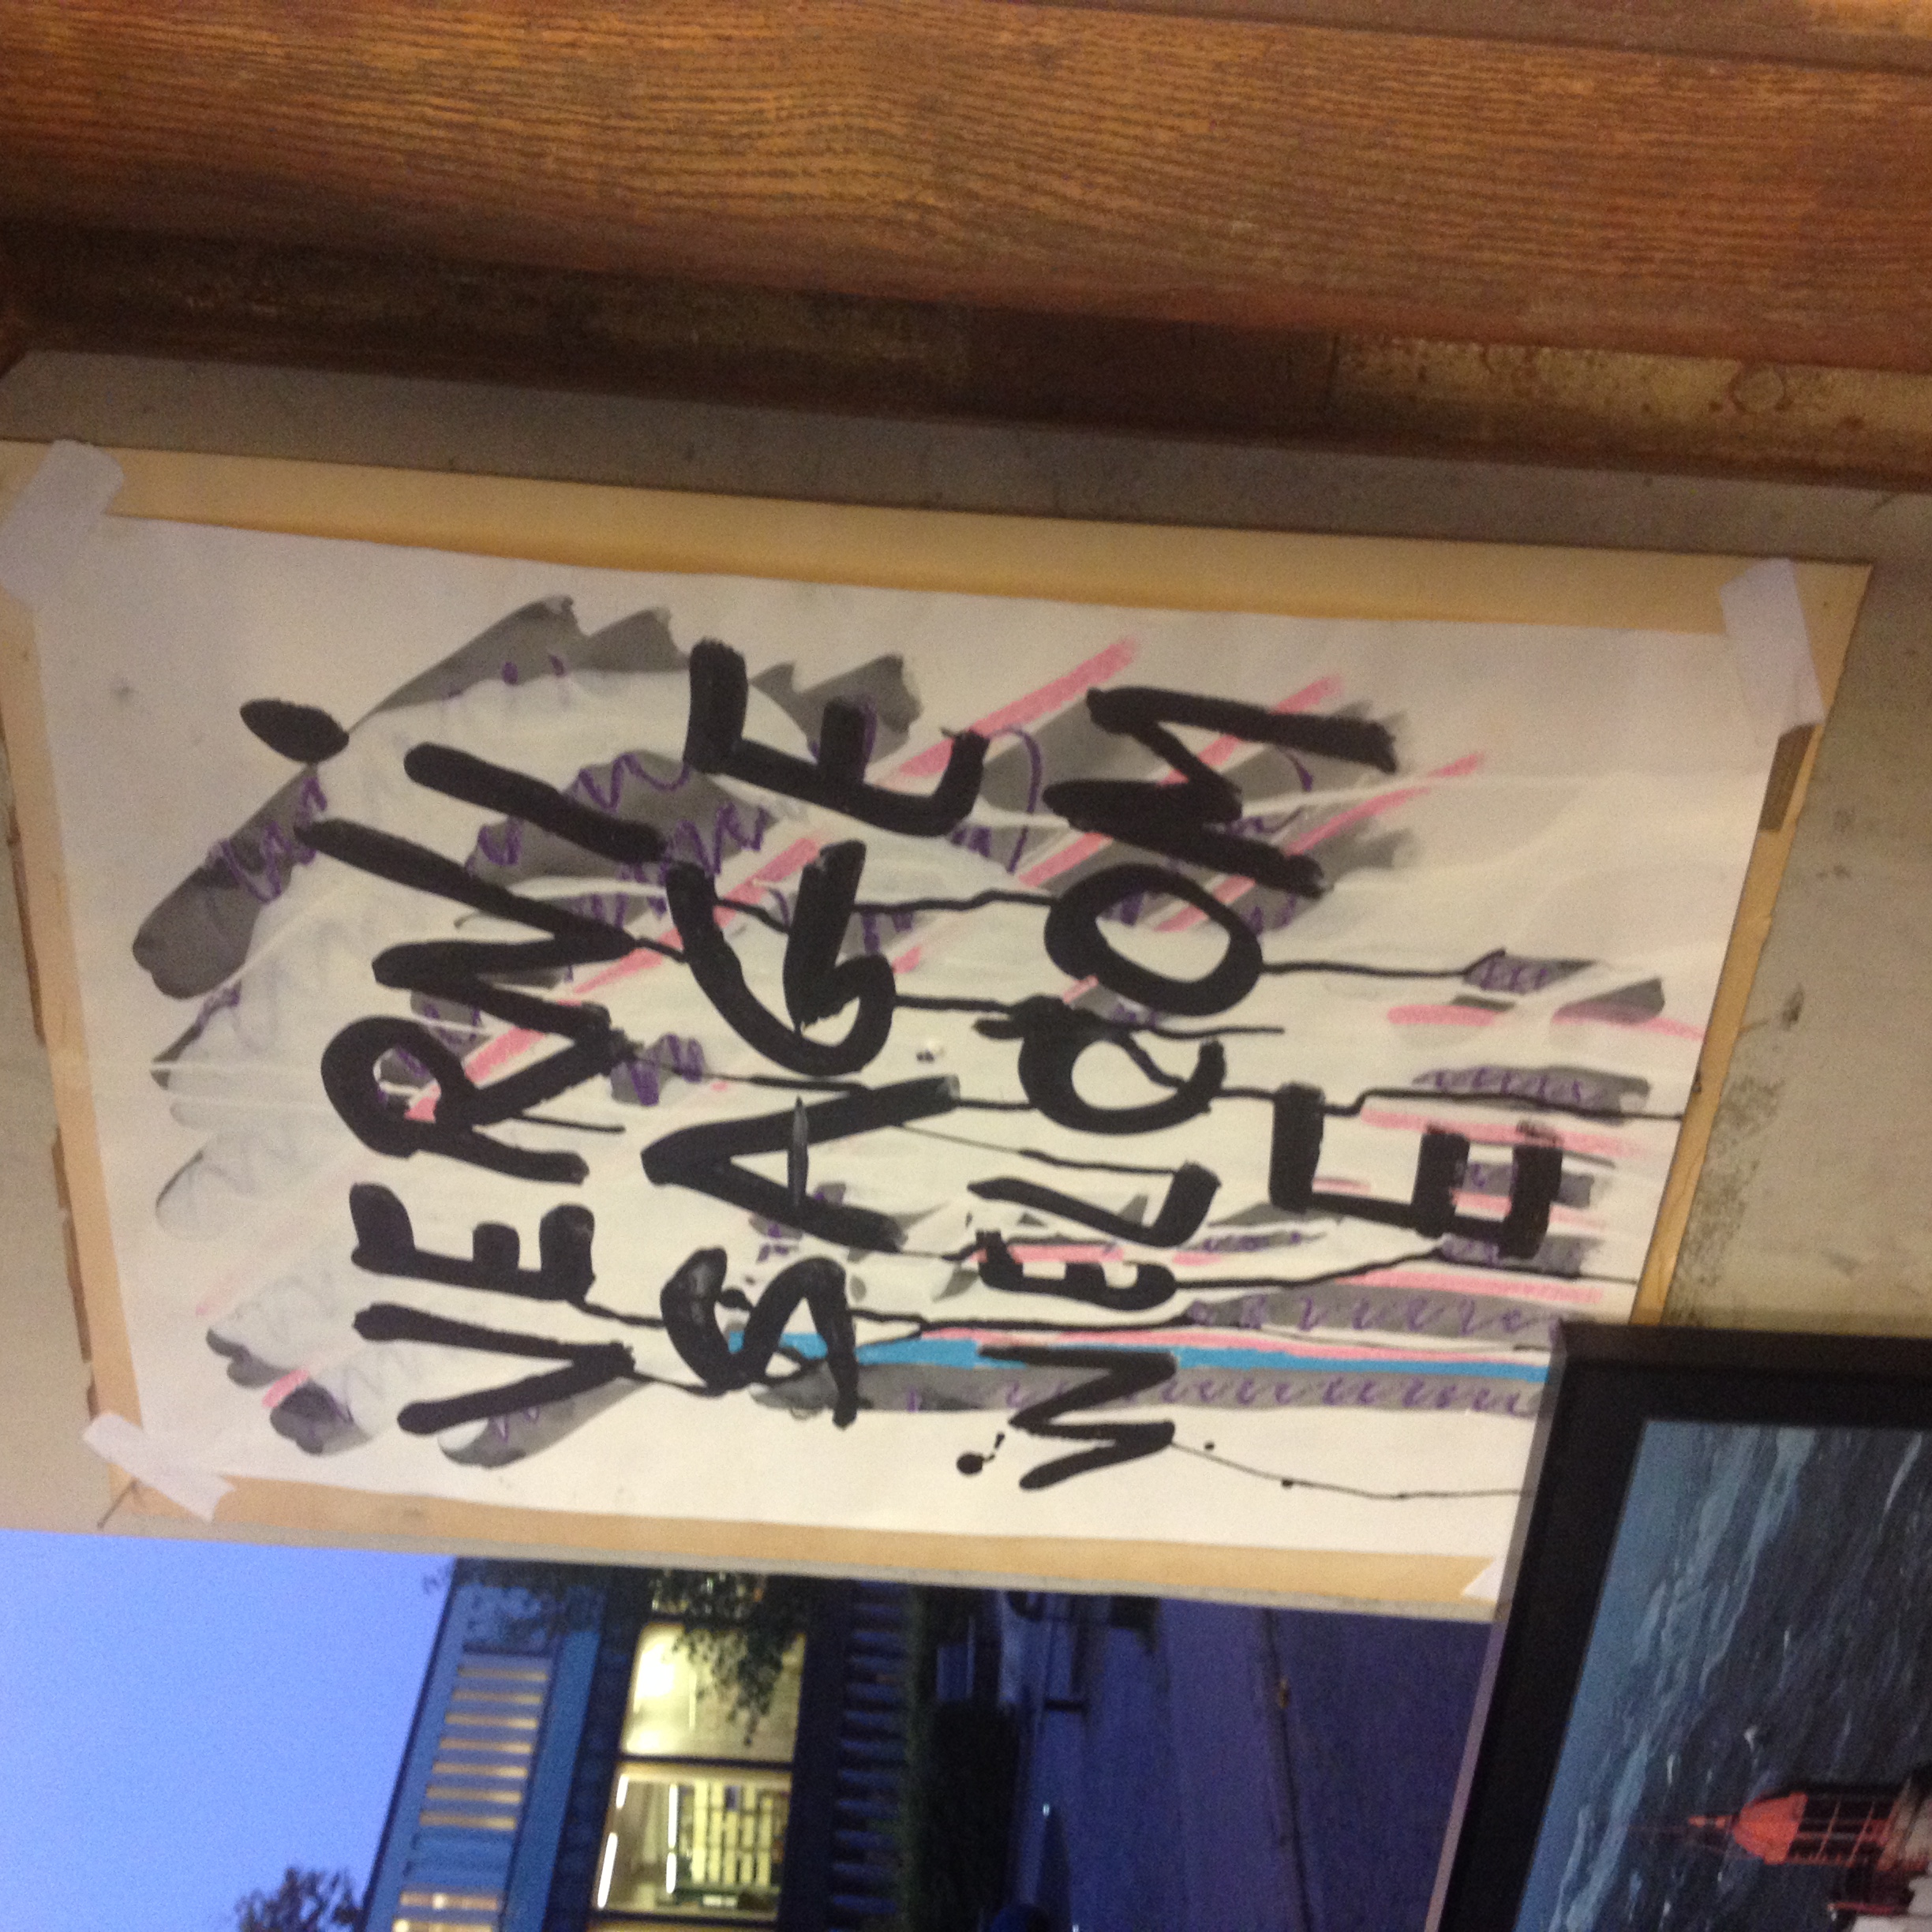 VERNi
SAGE
WELCOM
E